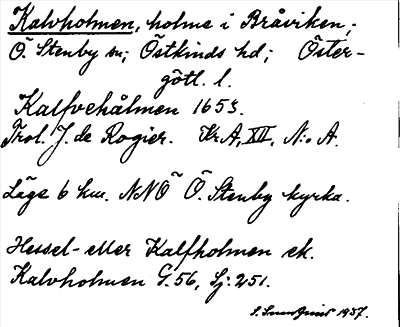 Kalvholmen, holme i Bråviken,
Ö. Stenby sn; Östkinds hd; Öster-
götl. l.
Kalfvehålmen 1653.
Trol. J. de Rogier. Kr A, XII, N:o A.
Läge 6 km. NNÖ Ö. Stenby kyrka.
Hessel- eller Kalfholmen ek.
Kalvholmen G. 56, Sj: 251.
1937.